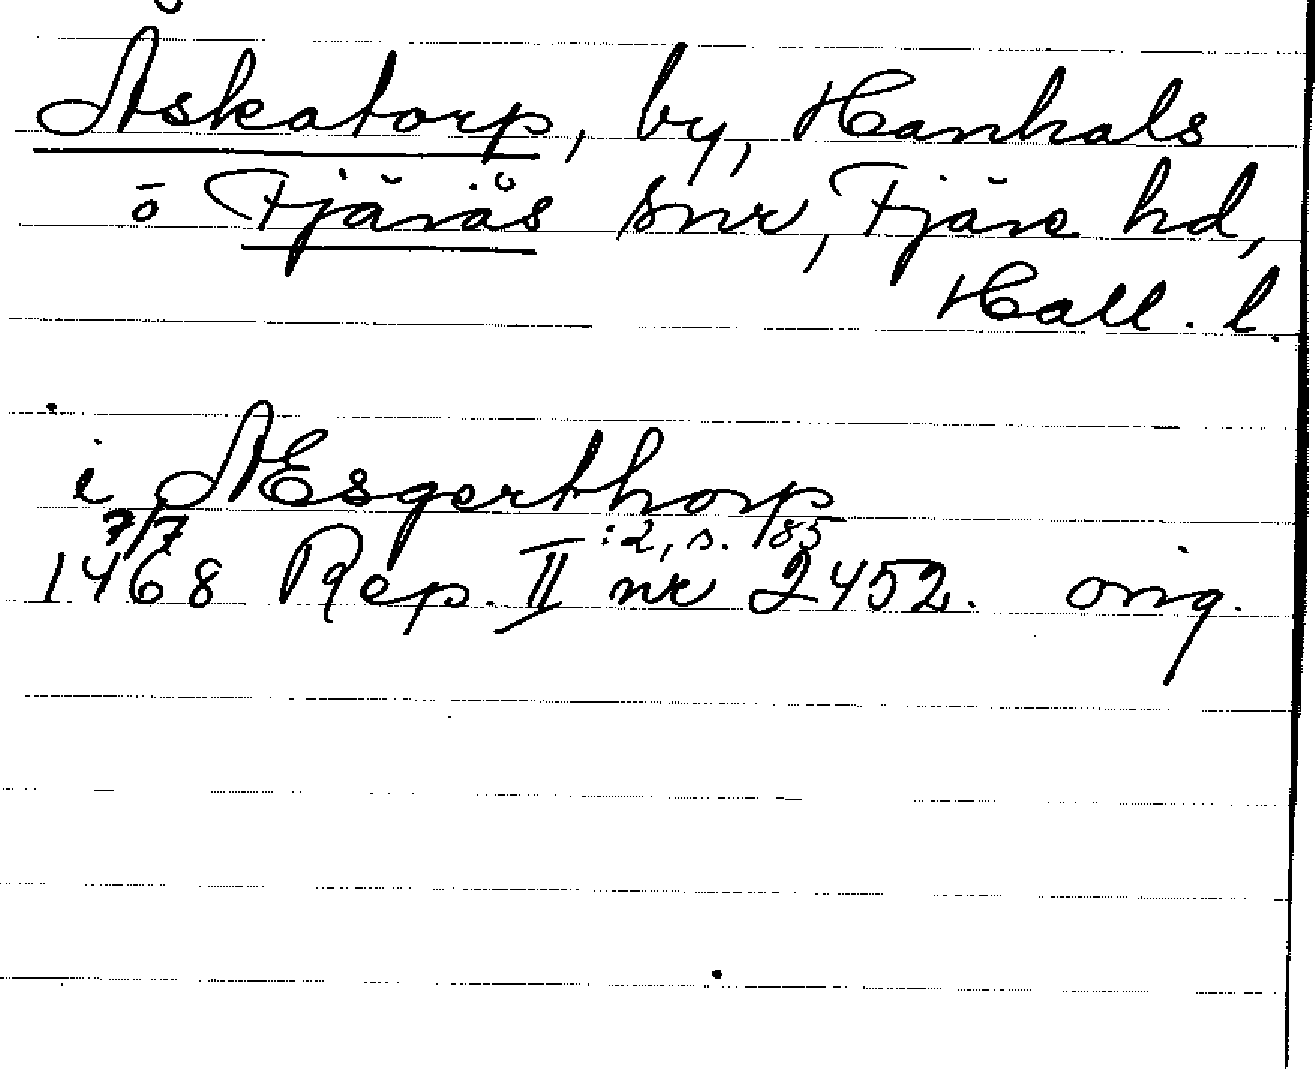 Åskatorp, by, Hanhals
o Fjärås snr, Fjäre hd,
Hall. l.
i AEsgerthorp
7/7 :2, s. 185
1468 Rep. II nr 2452. orig.